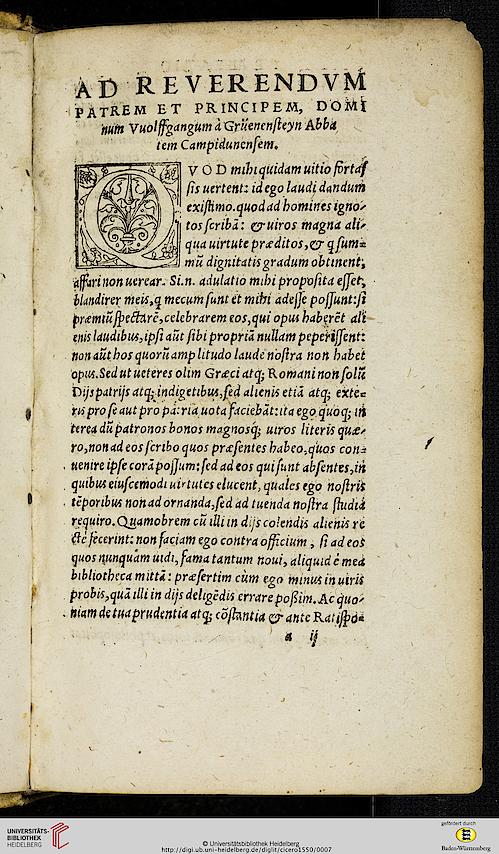 AD REVERENDVM
PATREM ET PRINCIPEM, DOMI
num Vuolffgangum à Grüenensteyn Abba
tem Campidunensem.
QVOD mihi quidam uitio fortas
sis uertent: id ego laudi dandum
existimo. quod ad homines igno⸗
tos scribā: & uiros magna ali⸗
qua uirtute præditos, & q̄ sum⸗
mū dignitatis gradum obtinent,
affari non uerear. Si.n. adulatio mihi proposita esset,
blandirer meis, q̄ mecum sunt et mihi adesse possunt: si
præmiū spectarē, celebrarem eos, qui opus haberēt ali
enis laudibus, ipsi aūt sibi propriā nullam peperissent:
non aūt hos quorū amplitudo laude nostra non habet
opus. Sed ut ueteres olim Græci atq; Romani non solū
Dijs patrijs atq; indigetibus, sed alienis etiā atq; exte⸗
ris pro se aut pro patria uota faciebāt: ita ego quoq; in
terea dū patronos bonos magnosq; uiros literis quæ⸗
ro, non ad eos scribo quos præsentes habeo, quos con⸗
uenire ipse corā possum: sed ad eos qui sunt absentes, in
quibus eiuscemodi uirtutes elucent, quales ego nostris
tēporibus non ad ornanda, sed ad tuenda nostra studia
requiro. Quamobrem cū illi in dijs colendis alienis re
ctè fecerint: non faciam ego contra officium, si ad eos
quos nunquam uidi, fama tantum noui, aliquid è mea
bibliotheca mittā: præsertim cùm ego minus in uiris
probis, quā illi in dijs deligēdis errare possim. Ac quo⸗
niam de tua prudentia atq; cōstantia & ante Ratispo⸗
a ij
UNIVERSITÄTS-
BIBLIOTHEK
HEIDELBERG
© Universitätsbibliothek Heidelberg
http://digi.ub.uni-heidelberg.de/diglit/cicero1550/0007
gefördert durch
Baden-Württemberg